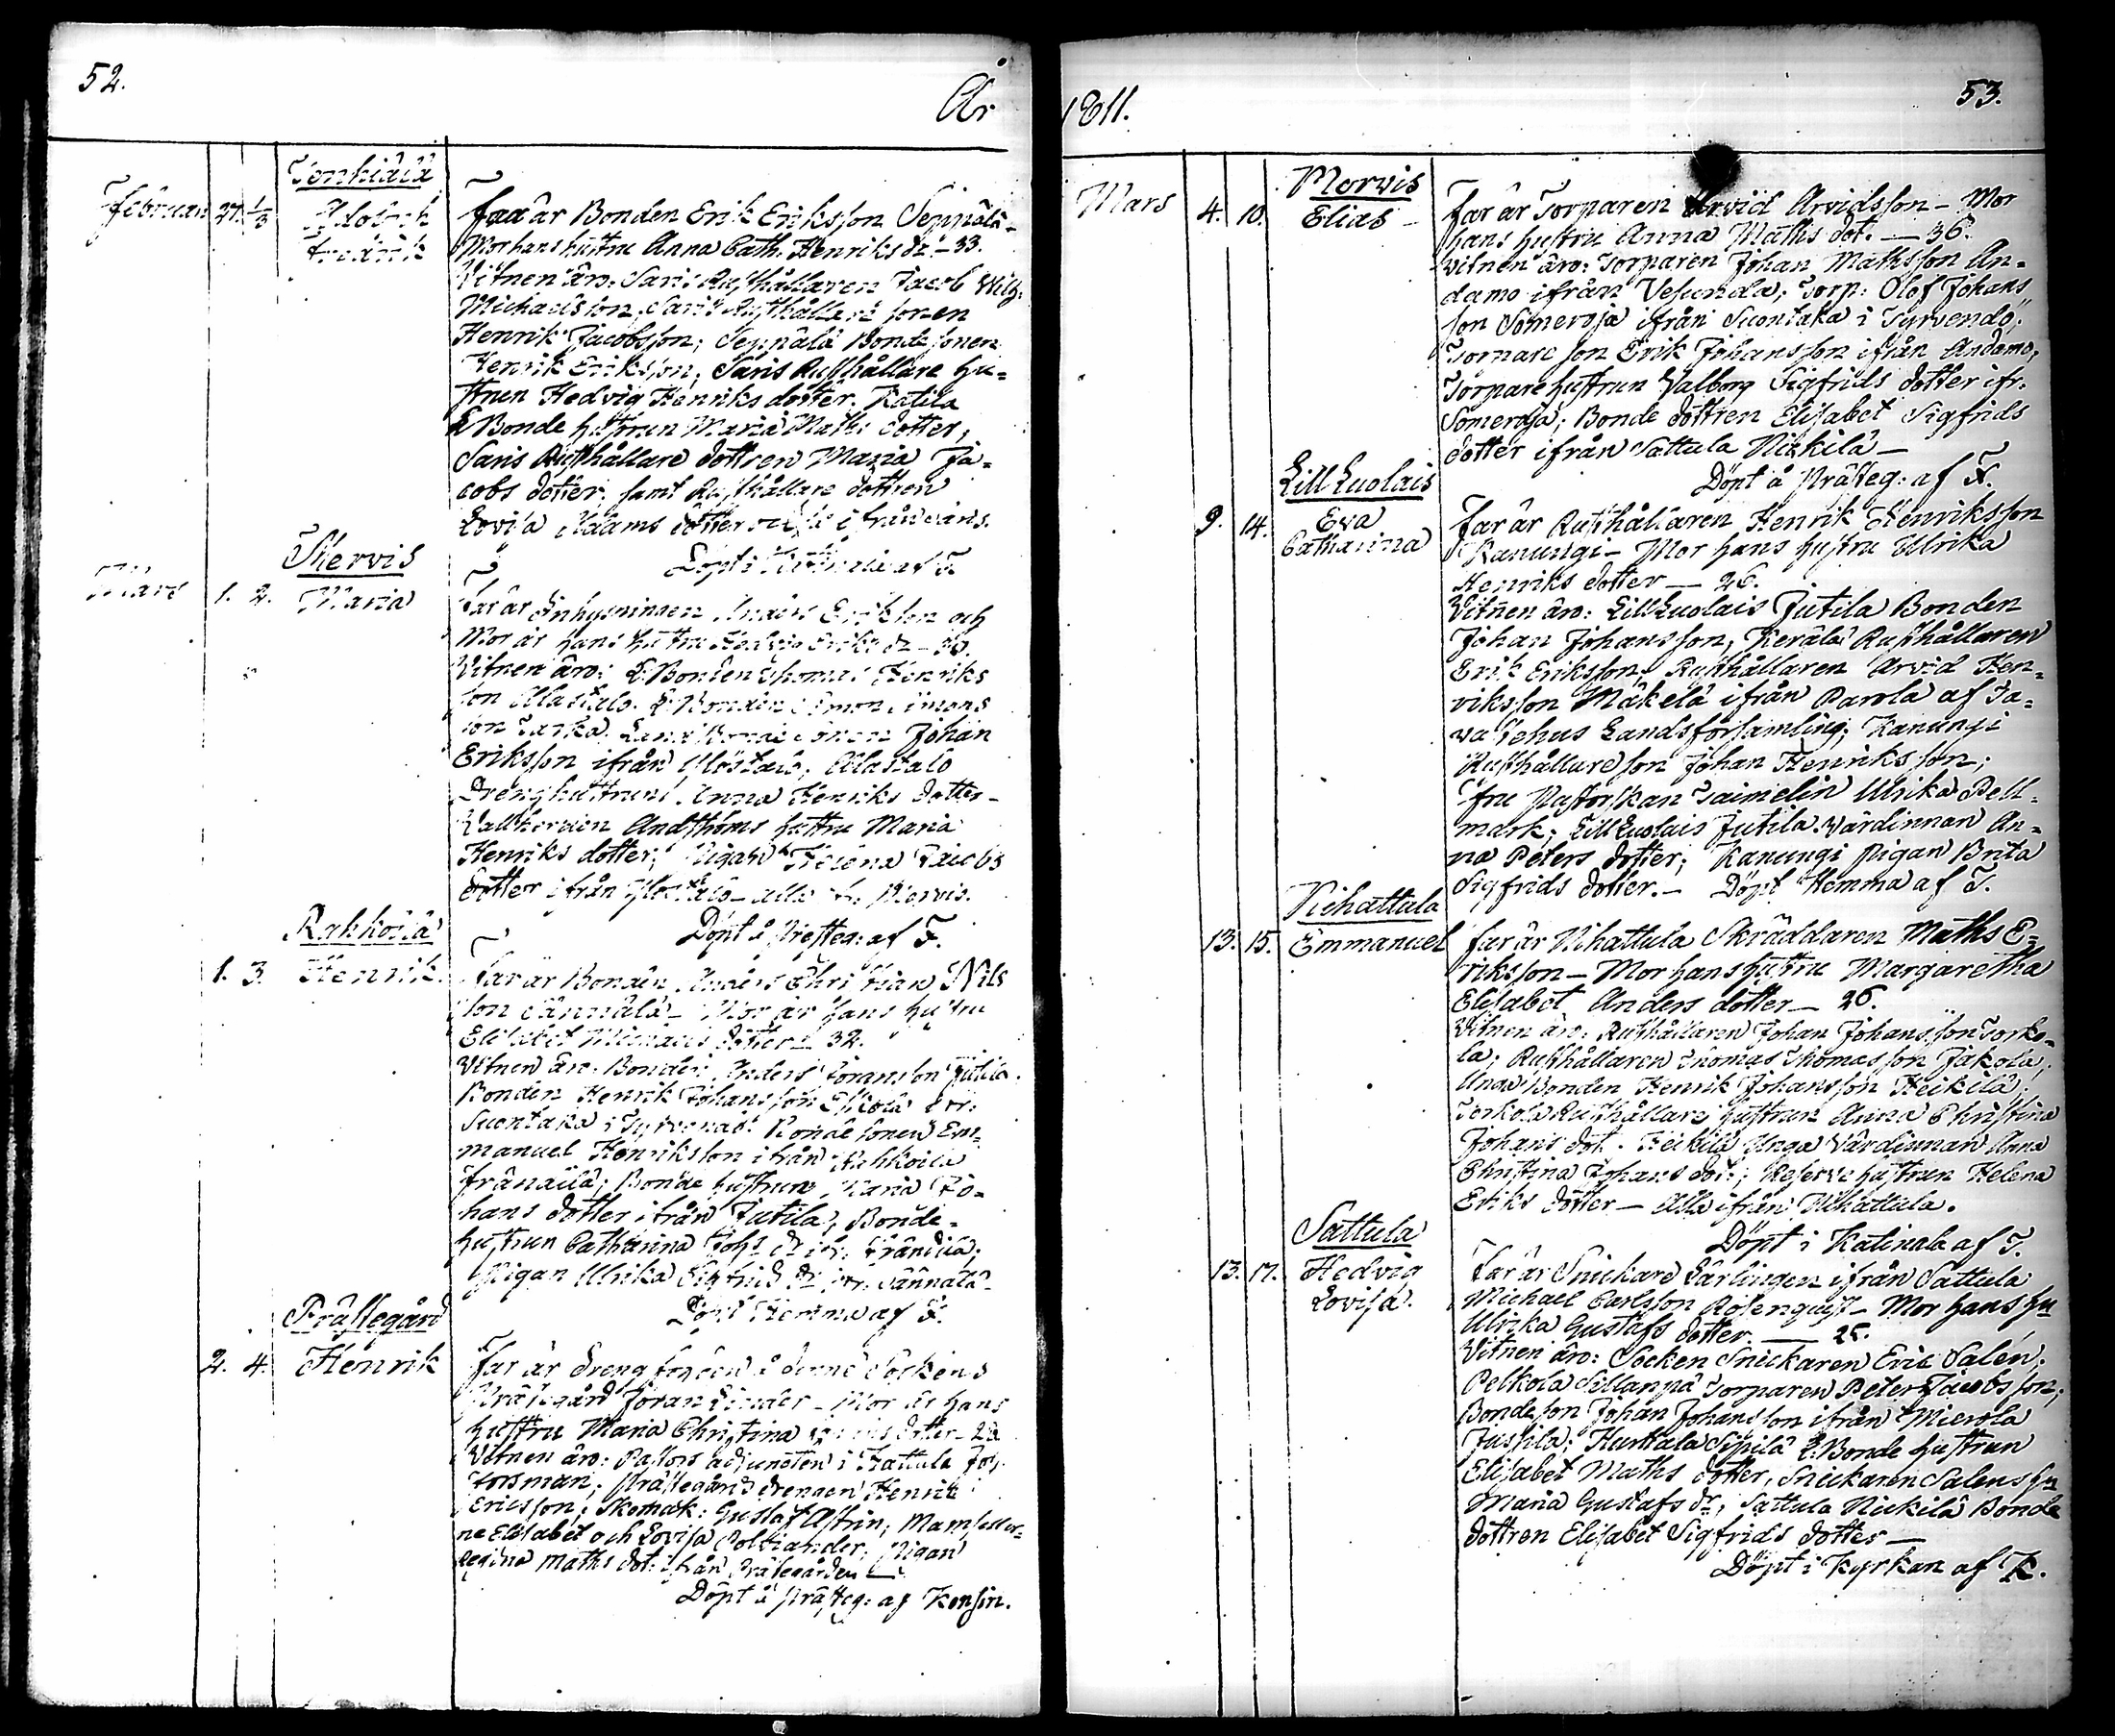 52.
År
Februari 27. 1/3
Adolph
Fredrik
Far är Bonden Erik Eriksson Seppälä
Mor hans hustru Anna Cath. Henriks dr. – 33.
Vitnen äro: Saris Rusthållaren Jacob
Michaelsson; Saris Rusthållare sonen
Henrik Jacobsson; Seppälä Bonde sonen
Henrik Eriksson; Saris Rusthållare hu-
strun Hedvig Henriks dotter. Katila
Bonde hustrun Maria Maths dotter;
Saris Rusthållare dottren Maria Ja-
cobs dotter. samt Rusthållare dottren
Lovisa Adams dotter ifrån
Döpt i af F.
Mervis
Mars 1. 2. Maria
Far är Inhysningen Anders Eriksson och
Mor är hans hustru Hedvig Eriks dr –
Vitnen äro: L. Bonden Thomas Henriks
son Alastalo. L. Bonden Simon Simons
son Johan
Eriksson ifrån Ylöstalo; Alastalo
Drenghustrun Anna Henriks dotter –
Vallherden Andsthöms hustru Maria
Henriks dotter; Pigan Helena Jacobs
dotter ifrån Ylöstalo – alla fr. Mervis.
Döpt å Presteg: af F.
Rahkoila
1. 3. Henrik.
Far är Bonden Anders Christian Nils
son Sännälä – Mor är hans hustru
Elisabet Michaels dotter – 32.
Vitnen äro: Bonden Anders Göransson Jutila
Bonden Henrik Johansson
Suontaka i Tyrvendö. Bonde sonen Em-
manuel Henriksson ifrån Rahkoila
Frändilä; Bonde hustrun Maria Jo-
hans dotter ifrån Jutila; Bonde-
hustrun Catharina Joh: dr ifr: Frändilä;
Pigan Ulrika Sigfrids dr ifr: Sännälä.
Döpt Hemma af F.
Prästegård
2. 4. Henrik
Far är Dreng fogden å denne Sockens
Prästegård Jöran – Mor är hans
hustru Maria Christina dotter –
Vitnen äro: Pastors adjuncten i Hattula Joh.
Forsman; Prästegårds drengen Henrik
Ericsson; Skomak: Gustaf Astrin; Mamseller-
ne Elisabet och Lovisa Polviander; Pigan
Regina Maths dot. ifrån Prästegården –
Döpt å Prästeg: af Konsin.
1811.
53.
Morvis
Mars 4. 10. Elias –
Far är Torparen Arvid Arvidsson – Mor
hans hustru Anna Maths dot. – 36.
Vitnen äro: Torparen Johan Mathsson An-
damo ifrån Vesunda; Torp: Olof Johans
son Someroja ifrån Suontaka i Tyrvendö;
Torpare son Erik Johansson ifrån Andamo;
Torpare hustrun Valborg Sigfrids dotter ifr.
Someroja; Bonde dottren Elisabet Sigfrids
dotter ifrån Sattula Nickilä –
Döpt å PräSteg: af F.
Lill Luolais
9. 14. Eva
Catharina
Far är Rusthållaren Henrik Henriksson
Kanungi – Mor hans hustru Ulrika
Henriks dotter – 26.
Vitnen äro: Lill Luolais Jutila Bonden
Johan Johansson; Kerälä Rusthållaren
Erik Eriksson. Rusthållaren Arvid Hen-
riksson Mäkelä ifrån Parola af Ta-
vastehus Landsförsamling; Kanungi
Rusthållare son Johan Henriksson;
Fru Pastorskan Taimelin Ulrika Bell-
mark; Lill Luolais Jutila Värdinnan An-
na Peters dotter; Kanungi Pigan Brita
Sigfrids dotter. – Döpt Hemma af F.
Vihattula
13. 15. Emmanuel
Far är Vihattula Skräddaren Maths E-
riksson – Mor hans hustru Margaretha
Elisabet Anders dotter – 26.
Vitnen äro: Rusthållaren Johan Johansson Torko-
la; Rusthållaren Thomas Thomasson Jakola;
Unga Bonden Henrik Johansson Heikilä;
Torkola Rusthållare hustrun Anna Christina
Johans dot. Heikilä Unga Värdinnan Anna
Christina Johans dot.; Reserve hustrun Helena
Eriks dotter – Alla ifrån Vihattula.
Döpt i Katinala af F.
Sattula
13. 17. Hedvig
Lovisa.
Far är Snickare Lärlingen ifrån Sattula
Michael Carlsson Rosenquist – Mor hans hu
Ulrika Gustafs dotter. – 25.
Vitnen äro: Socken Snickaren Eric Salén;
Pelkola Sillanpä Torparen Peter Jacobsson;
Bondeson Johan Johansson ifrån Mierola
Jussila; Hurttala Sipilä L. Bonde hustrun
Elisabet Maths dotter, Snickaren Salens hu
Maria Gustafs dr; Sattula Nickilä Bonde
dottren Elisabet Sigfrids dotter –
Döpt i Kyrkan af K.